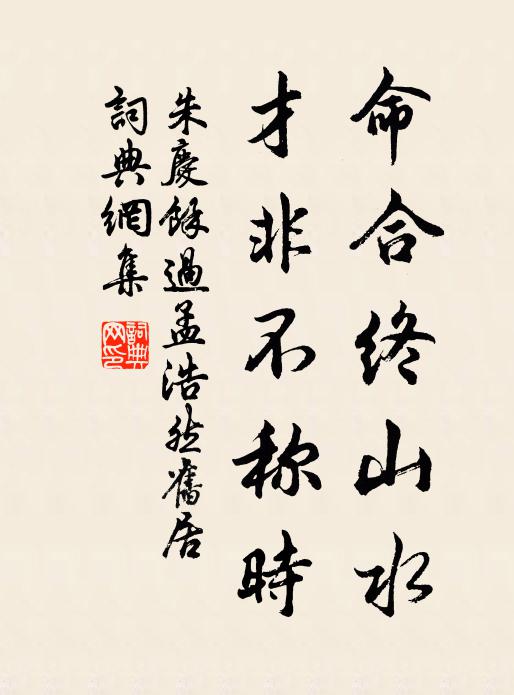 命合終山水
才非不称時
朱慶餘過孟浩然舊居
詞典網集
詞典網印